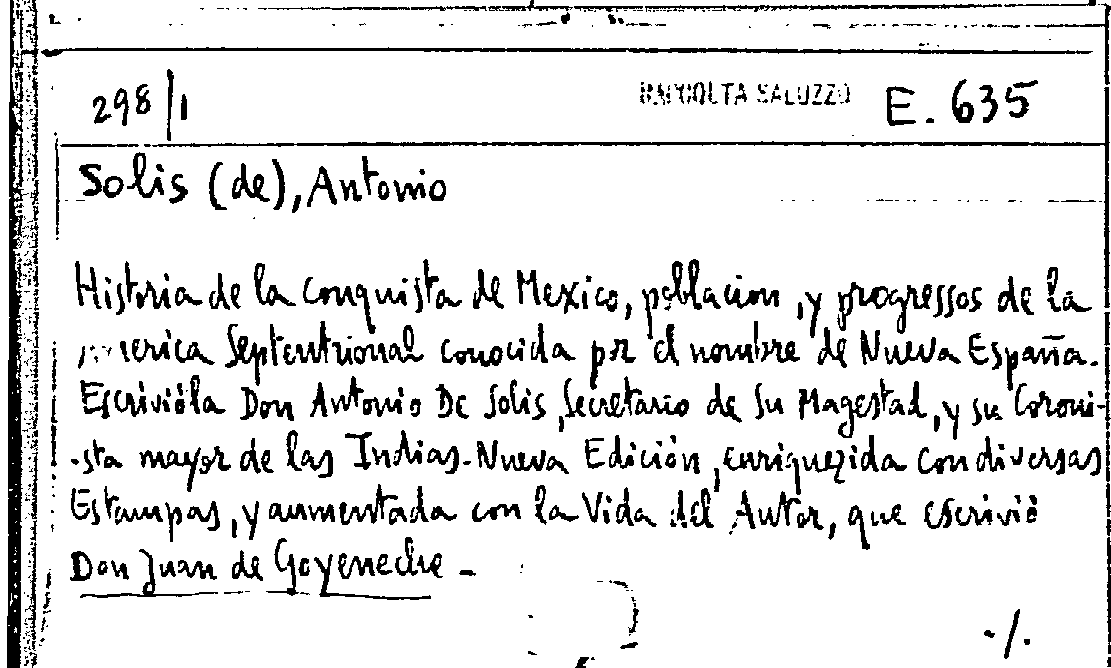 298/1 RACCOLTA SALUZZO E. 635
Solis (de), Antonio
Historia de la conquista de Mexico, poblacion, y progressos de la
America Septentrional conocida por el nombre de Nueva España.
Escrivióla Don Antonio De Solis, Secretario de Su Magestad, y su Coroni-
-sta mayor de las Indias. Nueva Edición, enriquezida con diversas
Estampas, y aumentada con la Vida del Autor, que escrivió
Don Juan de Goyeneche -
./.